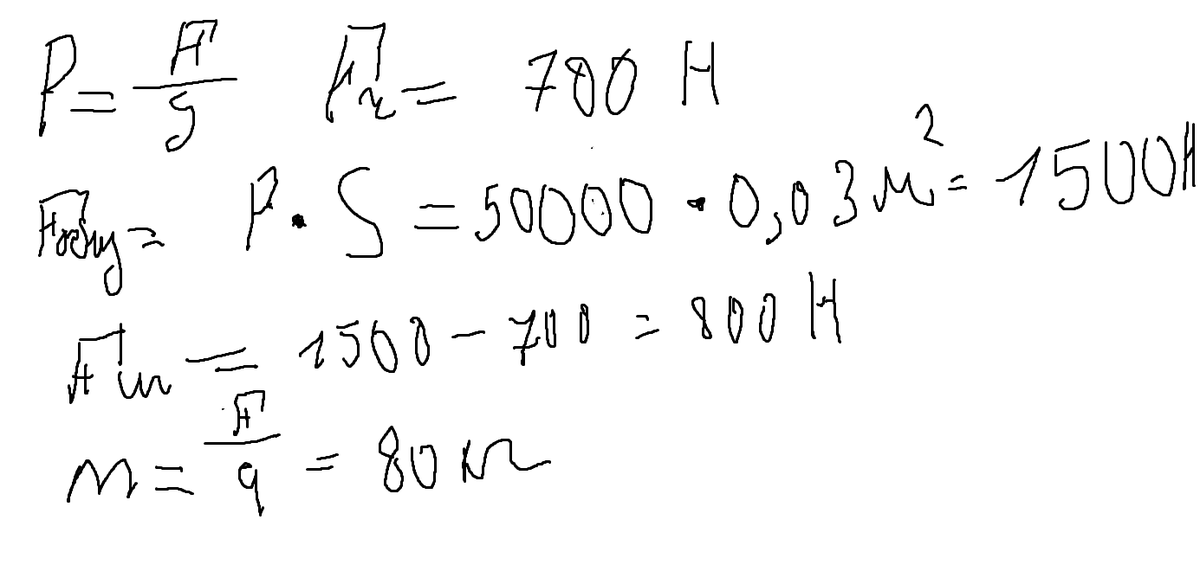 P = F/S F₂ = 700 Н
Fобщ = P · S = 50000 · 0,03 м² = 1500Н
Fш = 1500 - 700 = 800 Н
m = F/g = 80 кг